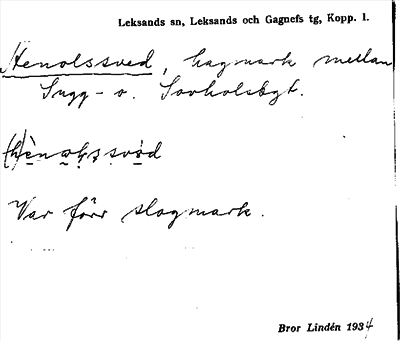 Leksands sn, Leksands och Gagnefs tg, Kopp. l.
Henolssved, hagmark mellan
Sugg- o. Sovholsbygt.
Var förr slogmark.
Bror Lindén 1934